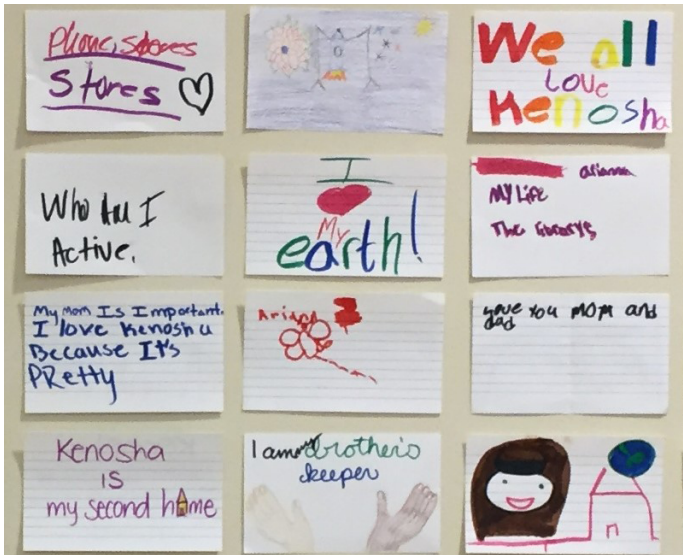 Phone, stores
Stores
We all
Love
Kenosha
Who Am I
Active.
I
My
earth!
arianna
My Life
The librarys
My mom Is Important.
I love Kenosha
Because It's
PRetty
Ariana
love you mom and
dad
Kenosha
is
my second home
I am my brother's
keeper